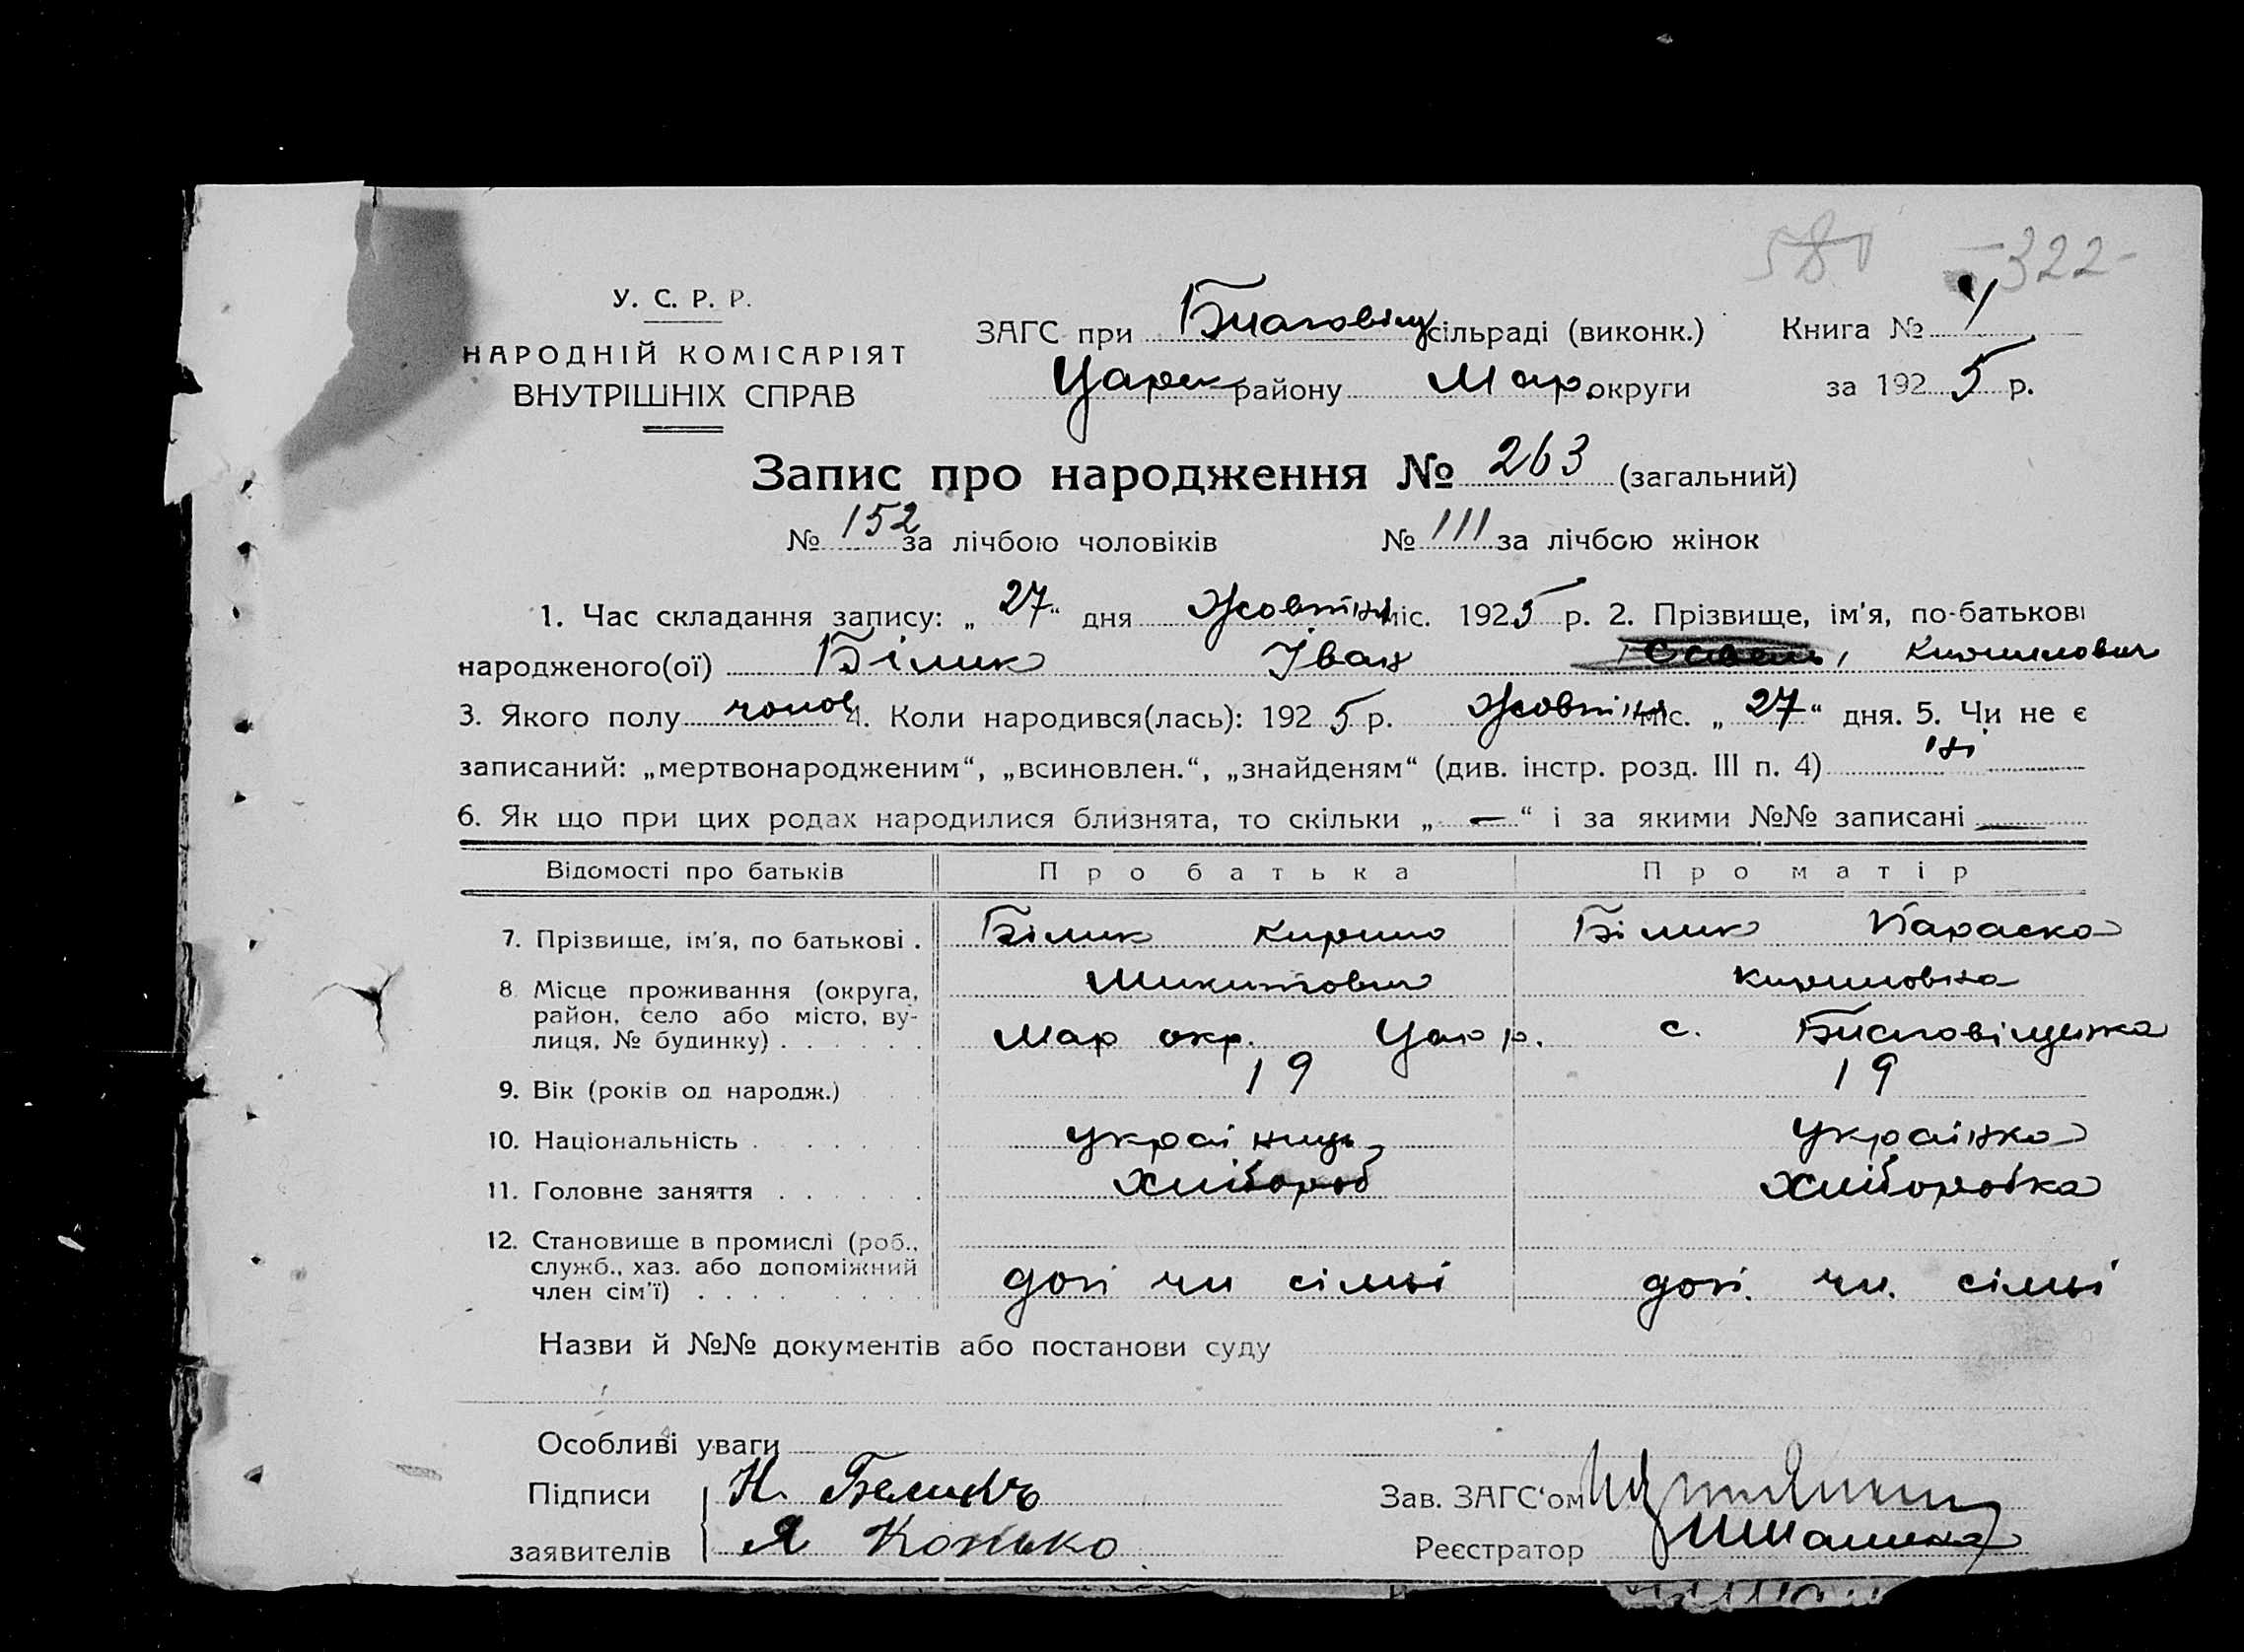 580 322-
У. С. Р. Р.
НАРОДНІЙ КОМІСАРІЯТ
ВНУТРІШНІХ СПРАВ
ЗАГС при Благовіщ сільраді (виконк.) Книга № 1
Царек району Мар. округи за 1925 р.
Запис про народження № 263 (загальний)
№ 152 за лічбою чоловіків № 111 за лічбою жінок
1. Час складання запису: „ 27 “ дня Жовтня міс. 1925 р. 2. Прізвище, ім'я, по-батькові
народженого(ої) Білик Іван Кирилович
3. Якого полу чолов 4. Коли народився(лась): 1925 р. Жовтня міс. „ 27 “ дня. 5. Чи не є
записаний: „мертвонародженим“, „всиновлен.“, „знайденям“ (див. інстр. розд. III п. 4) ні
6. Як що при цих родах народилися близнята, то скільки „ — “ і за якими №№ записані —
Відомості про батьків Про батька Про матір
7. Прізвище, ім'я, по батькові . Білик Кирило Білик Параска
Микитович Кириловна
8 Місце проживання (округа, район, село або місто, вулиця, № будинку) . . . . . . Мар окр. Цар р. с. Благовіщенка
9. Вік (років од народж.) 19 19
10. Національність . . . . . . українць українка
11. Головне заняття . . . . . . хлібороб хліборобка
12. Становище в промислі (роб., служб., хаз. або допоміжний член сім'ї) . . . . . . . . . доп чл сімьі доп. чл. сімьі
Назви й №№ документів або постанови суду
Особливі уваги
Підписи Н. Беликъ Зав. ЗАГС'ом
заявителів Я Конько Реєстратор